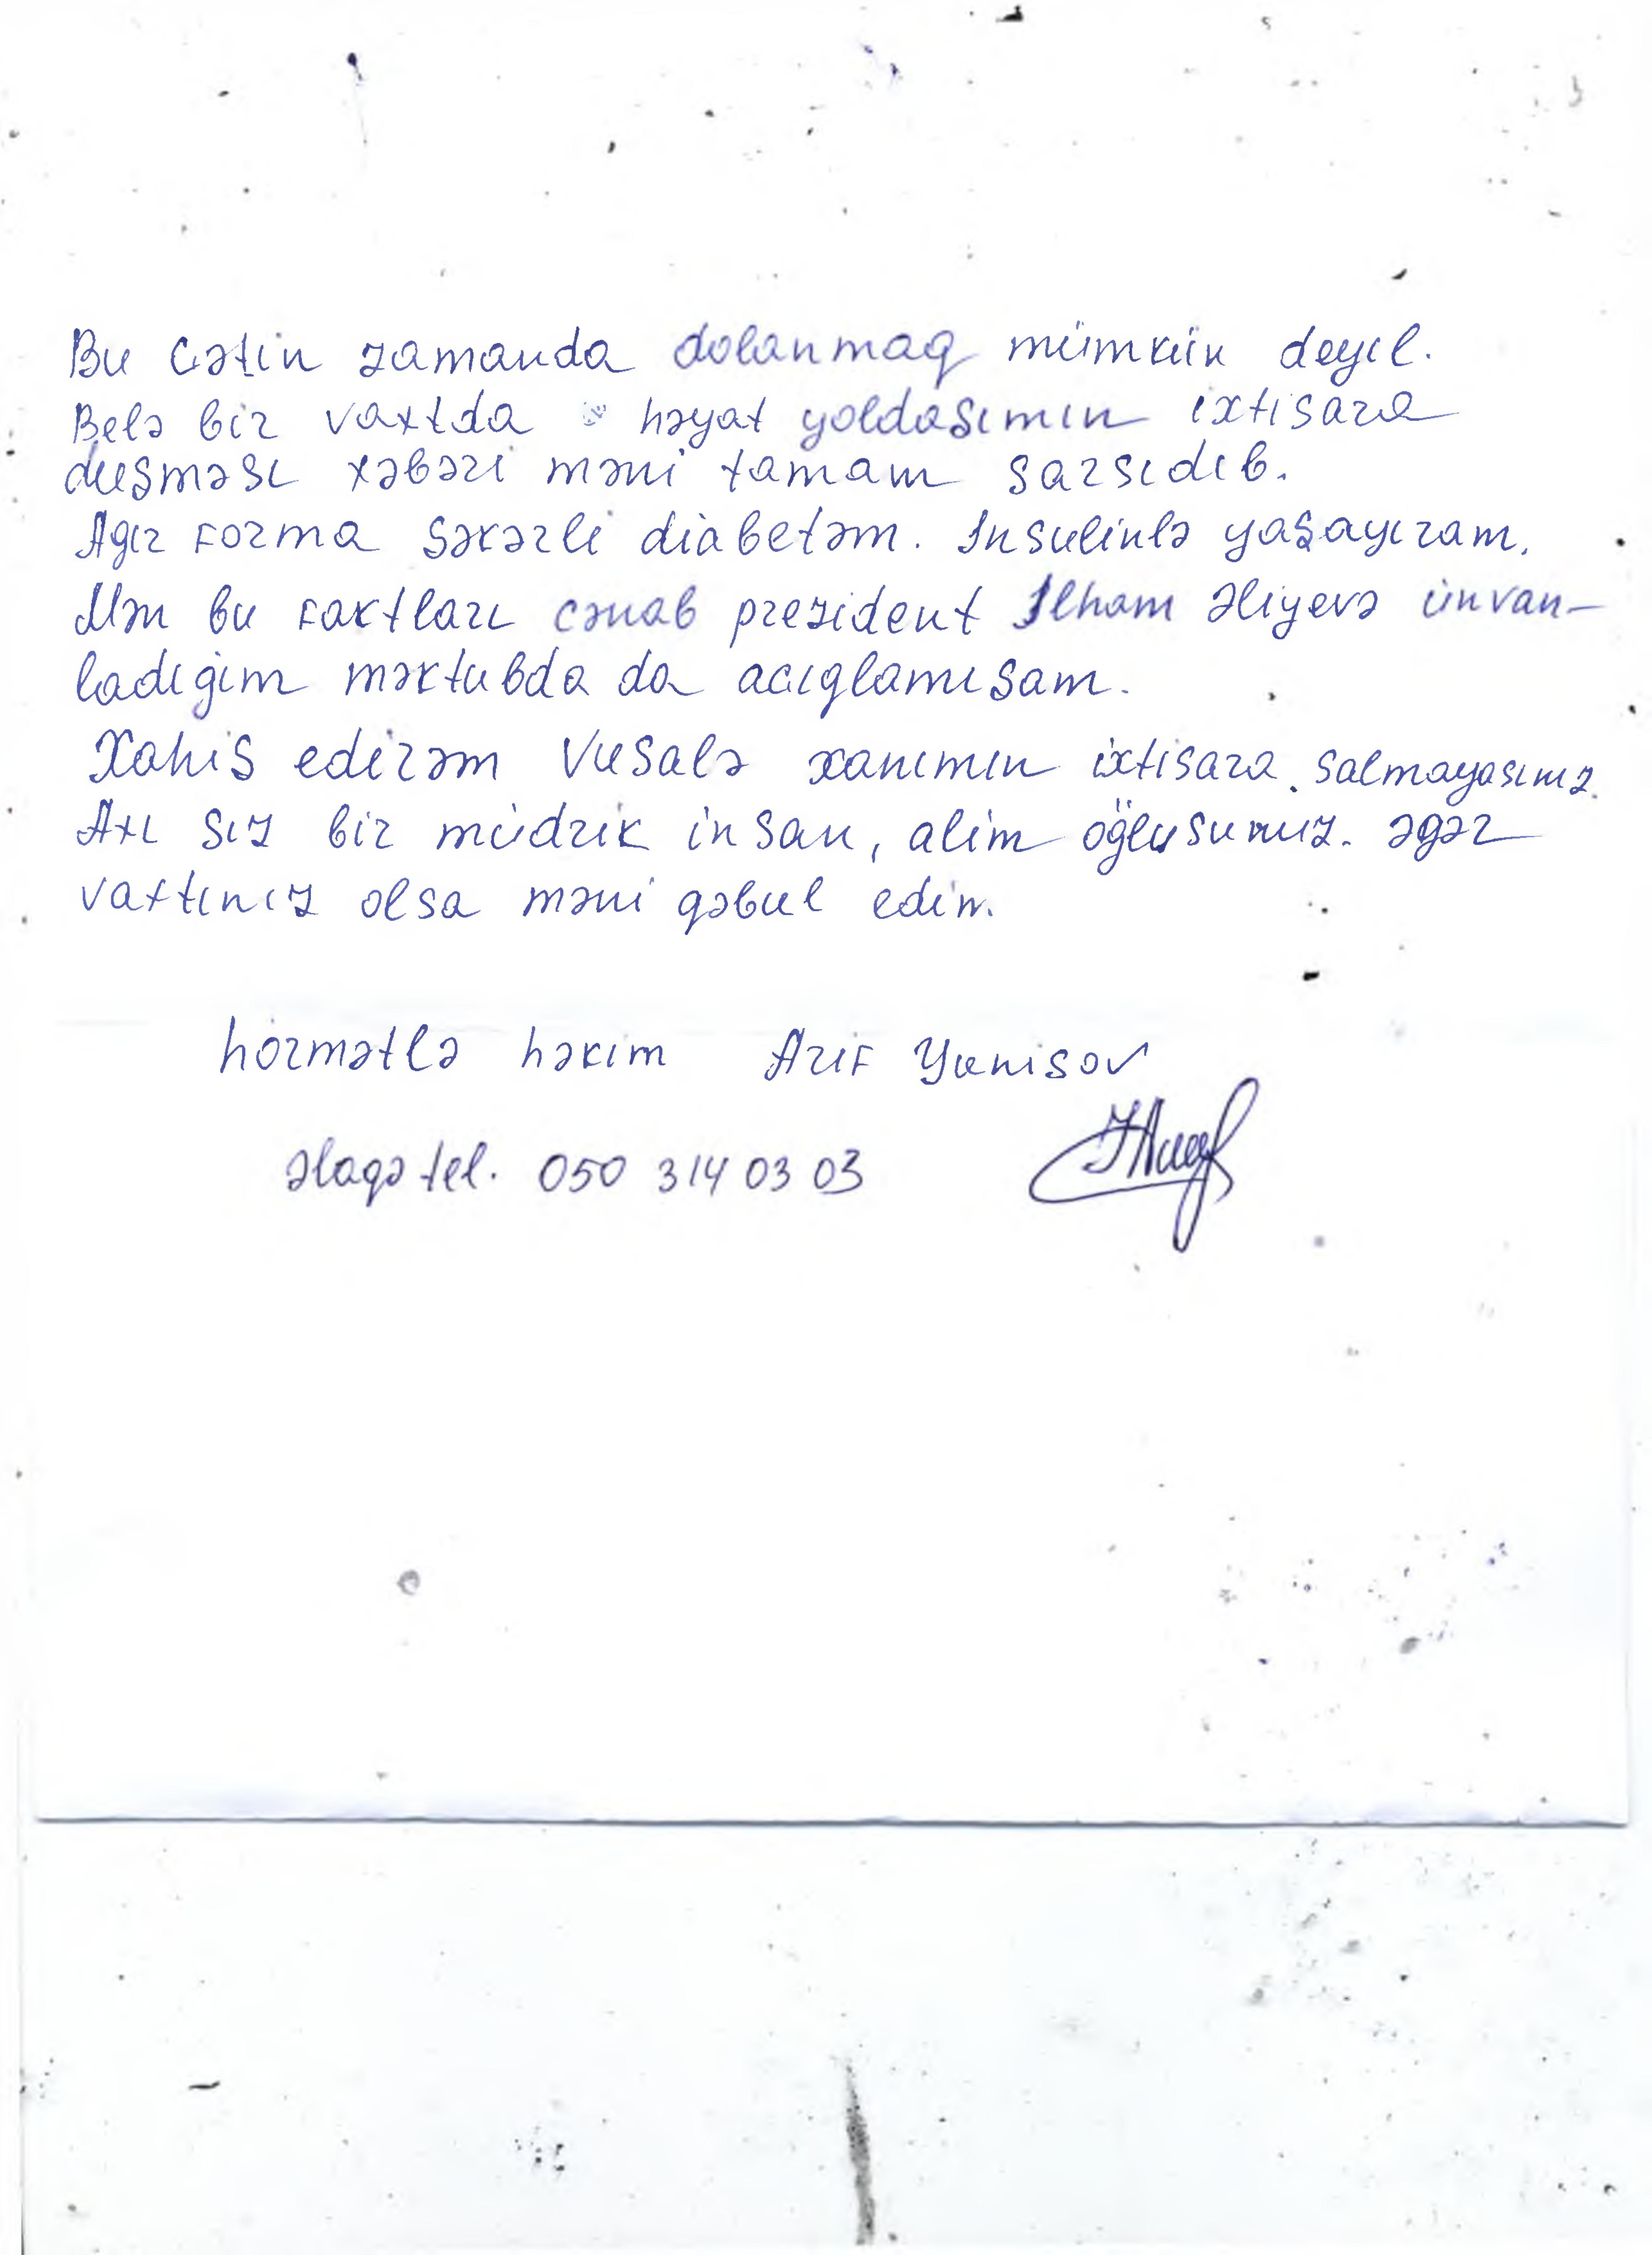 Bu cətin zamanda dolanmaq mümkün deyıl.
Belə bir vaxtda həyat yoldaşımın ixtisara
düşməsı xəbəri məni tamam sarsıdıb.
Agır forma şəkərli diabetəm. Insulinlə yaşayıram.
Mən bu faktları cənab prezident Ilham Əliyevə ünvan-
ladığım məktubda da acıqlamışam.
Xahiş edirəm Vusalə xanımın ixtisara salmayasınız.
Axı sız bir müdrik insan, alim oğlusunuz. Əgər
vaxtınız olsa məni qəbul edin.
hörmətlə həkım Arif Yunisov
Əlaqə tel. 050 314 03 03